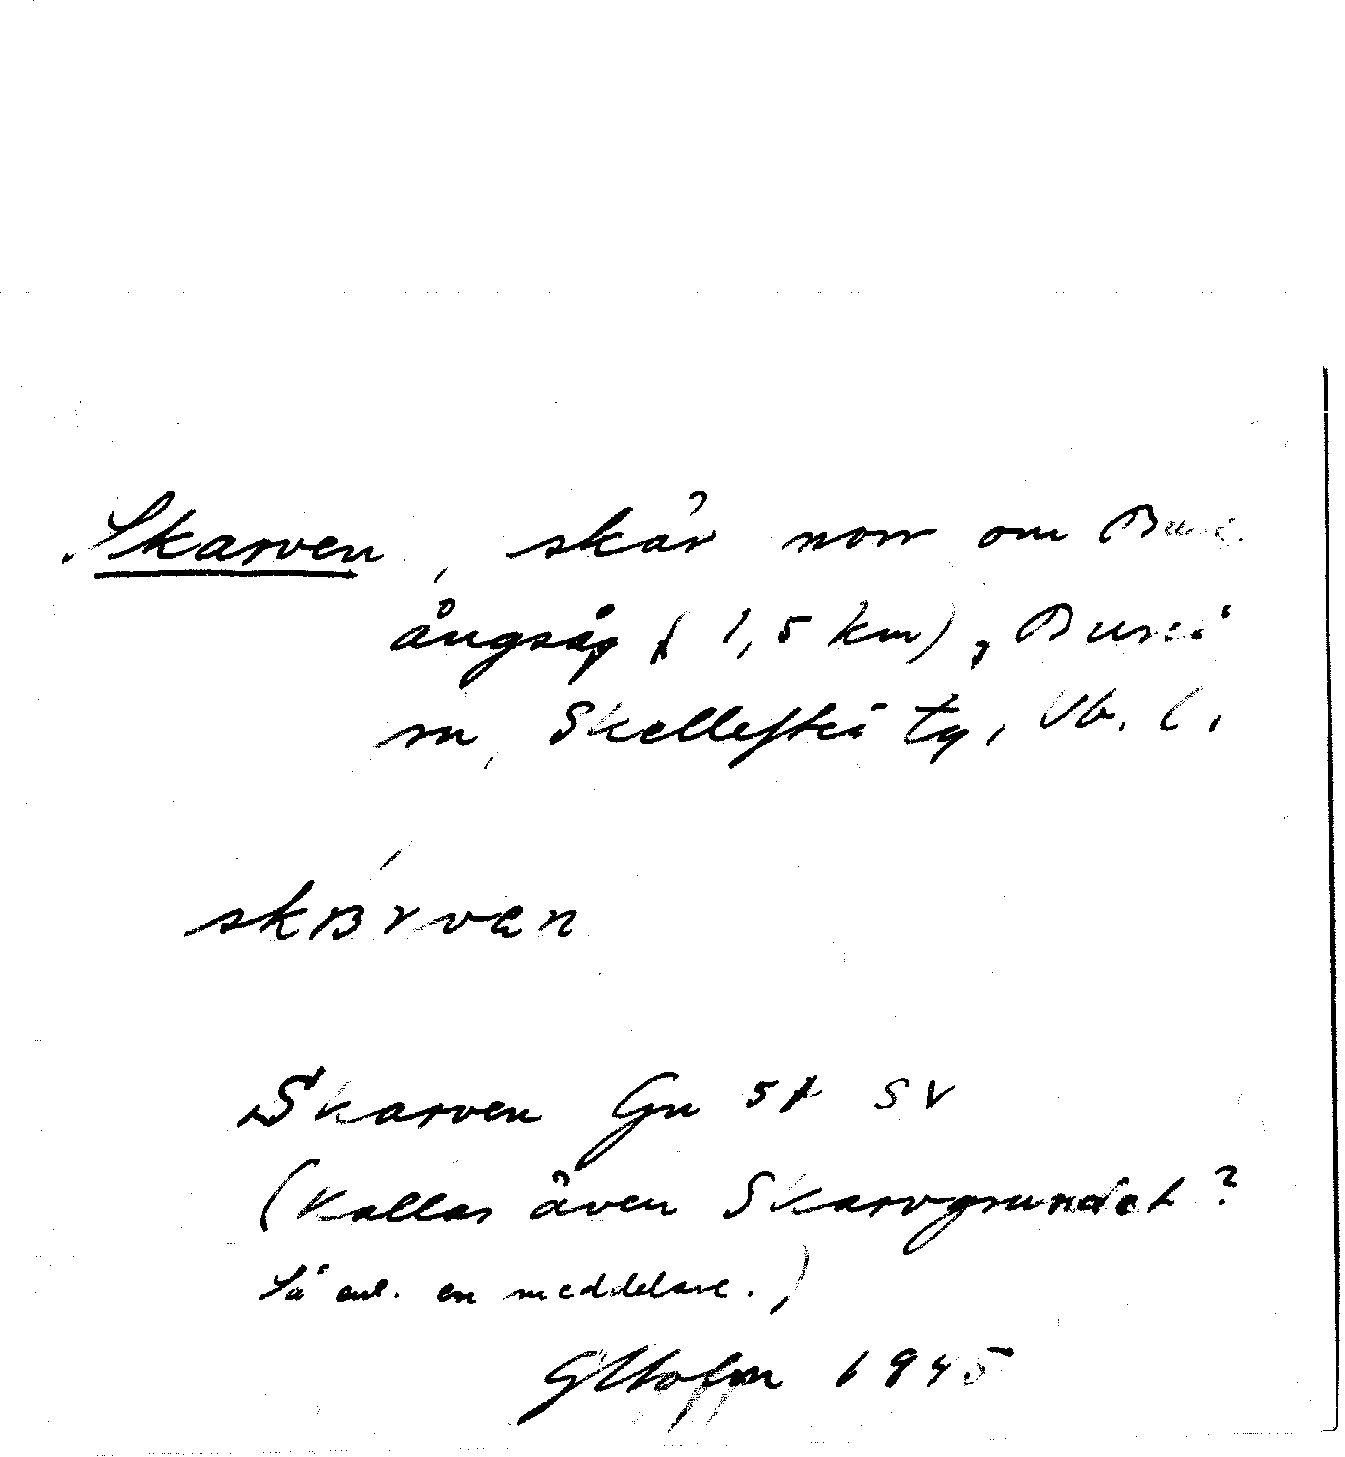 Skarven, skär norr om Bureå
ångsåg (1,5 km), Bureå
sn, Skellefteå tg, Vb. l.
skarvan
Skarven Gn 51 SV
(Kallas även Skarvgrundet?
Så enl. en meddelare.)
1945